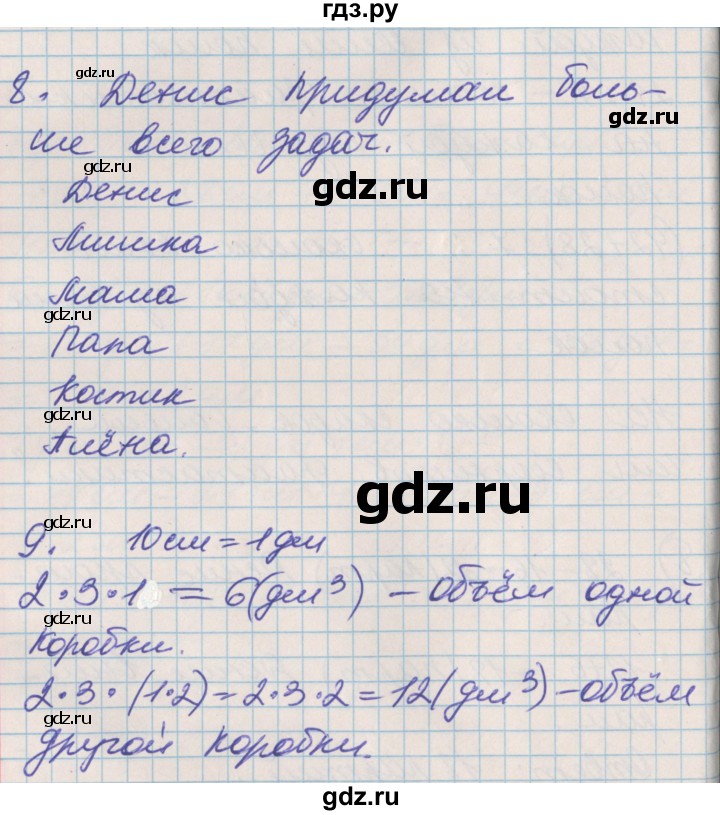 гдз.ру
gdz.ru
8. Денис придумал боль-
gdz.ru
ше всего задач.
gdz.ru
gdz.ru
Денис
Мишка
Мама
gdz.ru
Папа
Костик
gdz.ru
Алёна.
gdz.ru
9. 10см = 1дм
gdz.ru
2·3·1 = 6(дм³) – объём одной
gdz.ru
коробки.
2·3·(1·2) = 2·3·2 = 12(дм³) – объём
gdz.ru
другой коробки.
gdz.ru